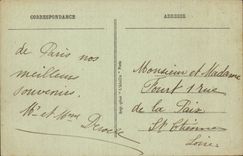 CORRESPONDANCE
ADRESSE
de Paris nos
meilleurs
souvenirs.
Mr et Mme
Monsieur et Madame
1 rue
de la Paix
St Etienne
Loire